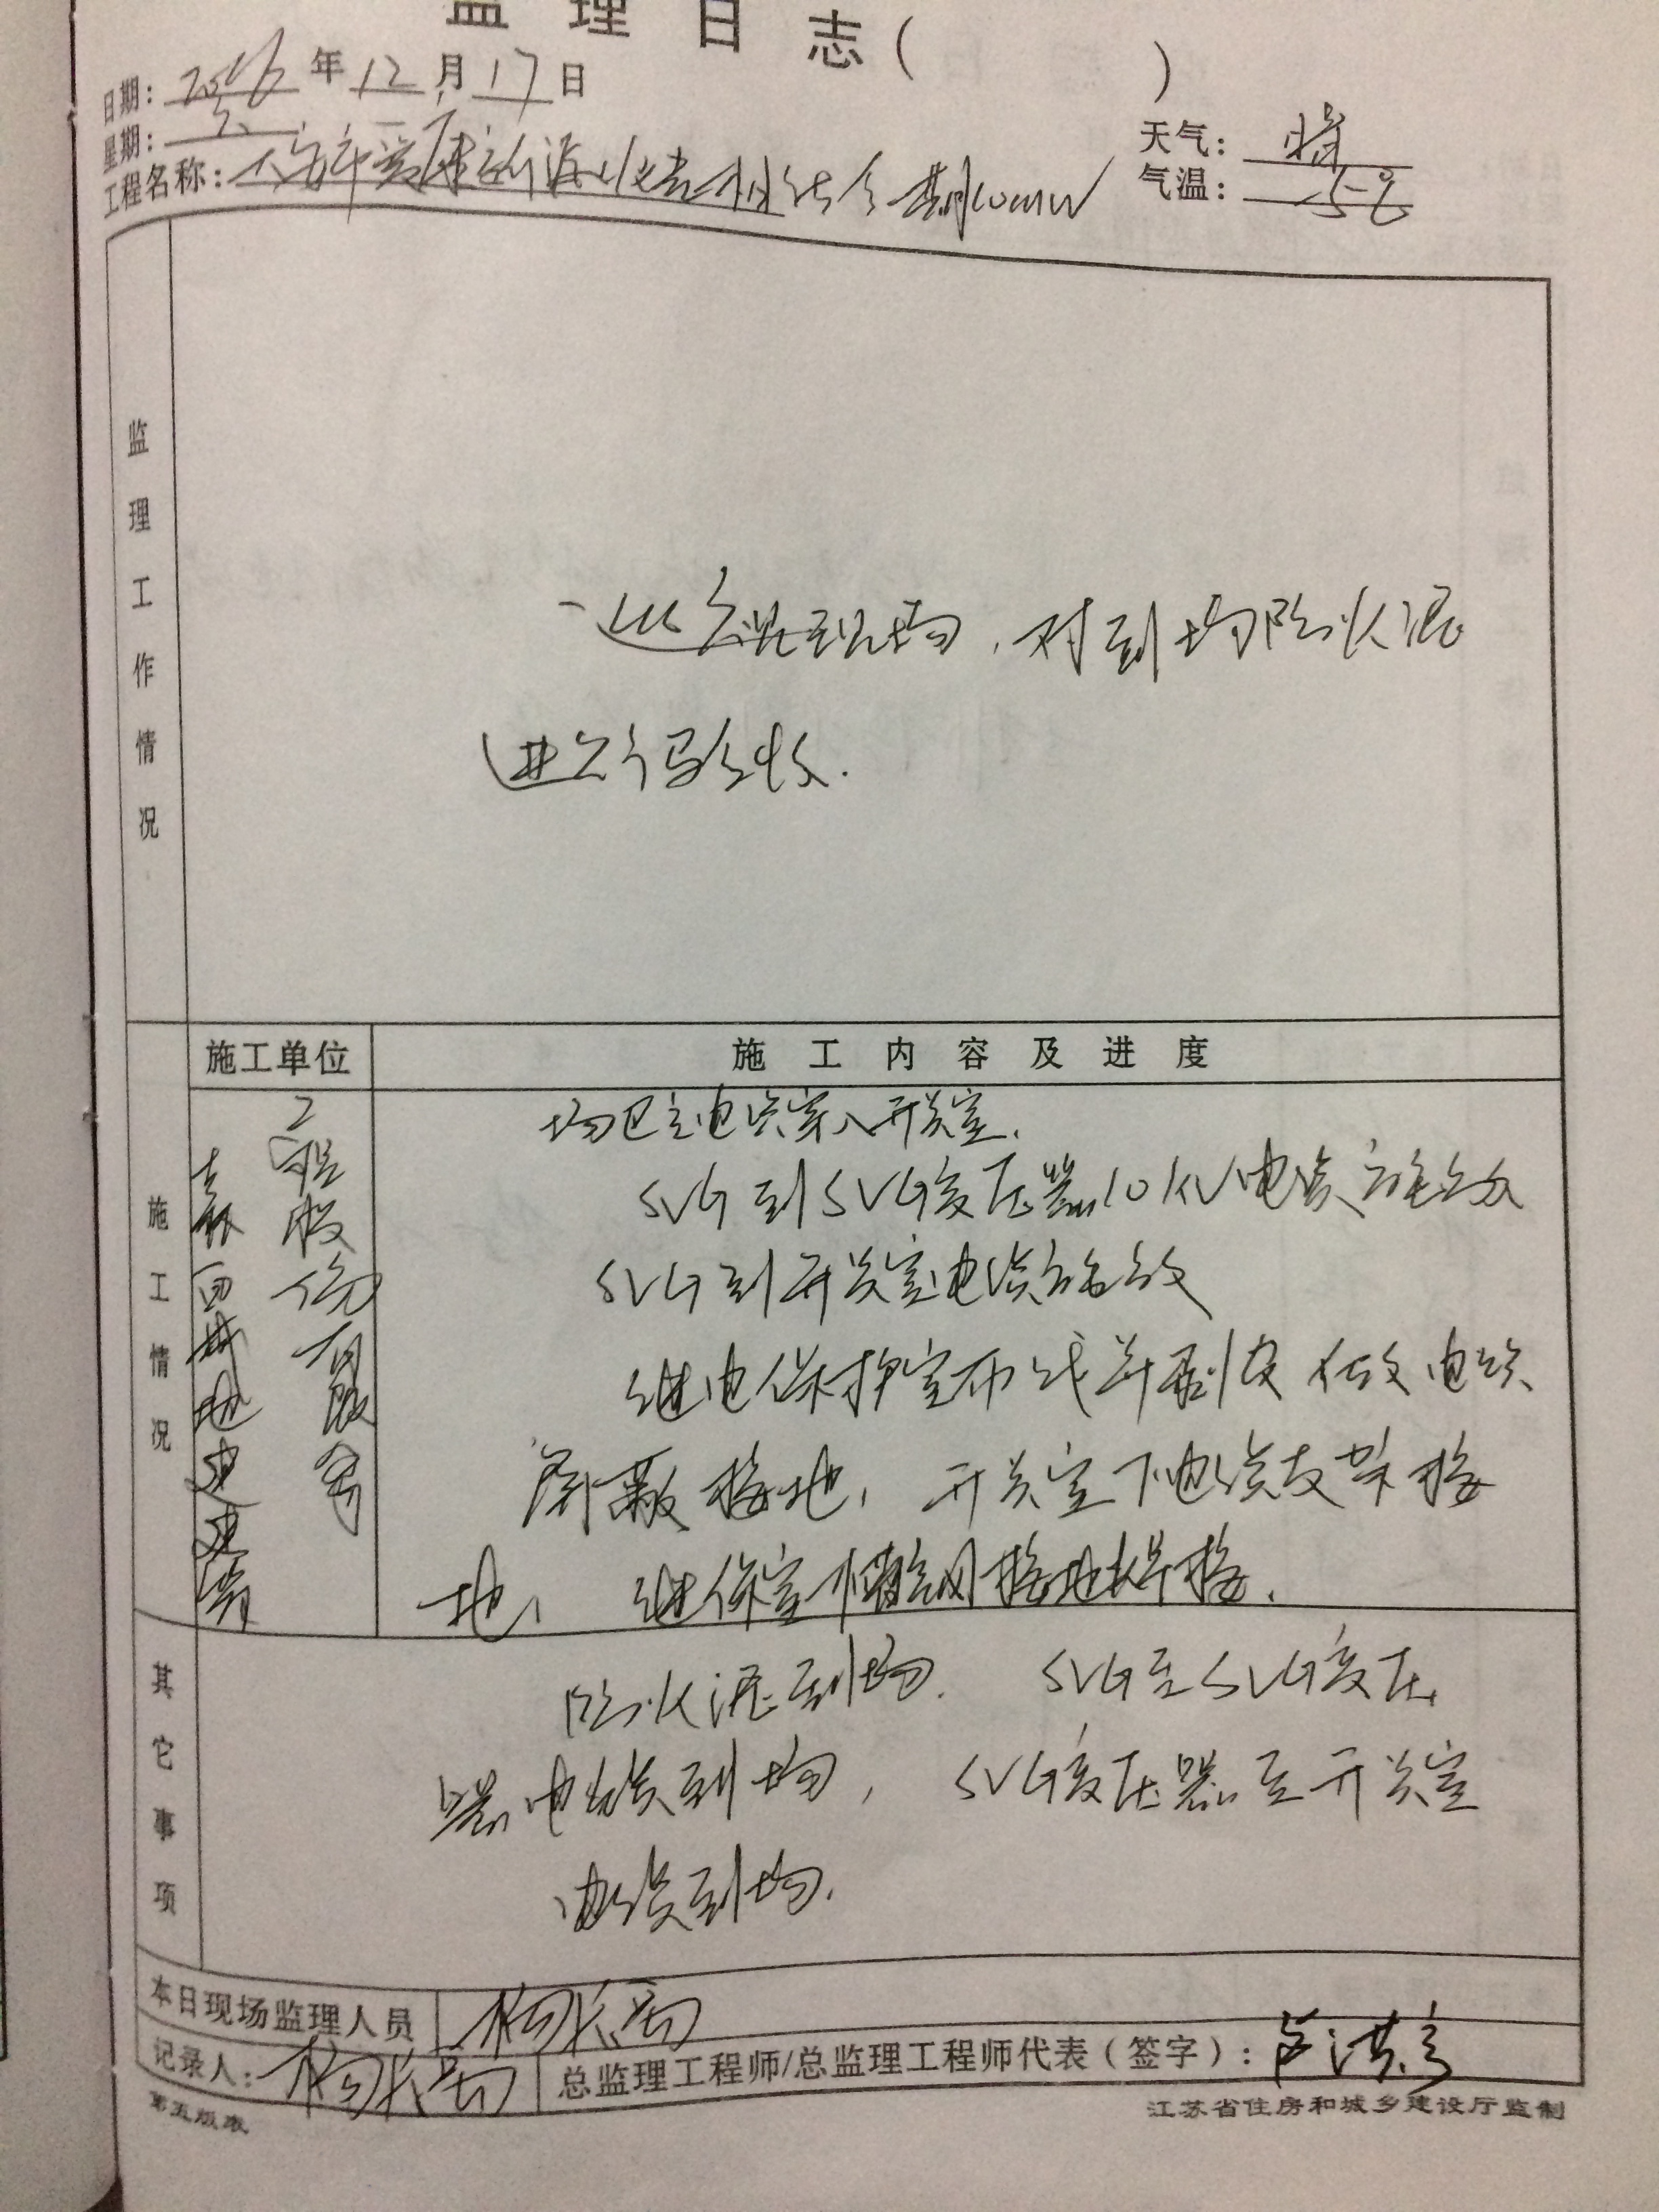 监理日志( )
日期: 2016 年 12 月 17 日
星期: 六
天气: 晴
工程名称:
气温: -5℃
监理工作情况
巡视现场,对到场防火泥
进行验收.
施工单位
施工内容及进度
施工情况
工程股份有限公司
场区主电缆穿入开关室.
SVG到SVG变压器10KV电缆敷设
SVG到开关室电缆敷设
继电保护室布线并剥皮 做电缆
屏蔽接地, 开关室下电缆支架接
地, 继保室下接地焊接.
其它事项
防火泥到场. SVG至SVG变压
器电缆到场, SVG变压器至开关室
电缆到场.
本日现场监理人员
记录人:
总监理工程师/总监理工程师代表(签字):
第五版表
江苏省住房和城乡建设厅监制